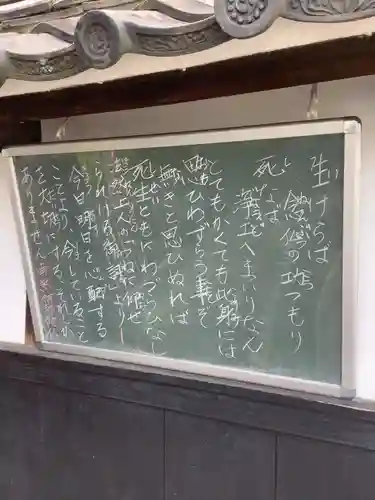 生けらば
念仏の功つもり
死なば
浄土へまいりなん
とてもかくても此身には
思ひわずらう事ぞ
無きと思ひぬれば
死生ともにわづらひなし
法然上人のつねに仰せ
られける御詞より
今日明日を心配する
ことより、今していること
を大切にする。それしか
ありません